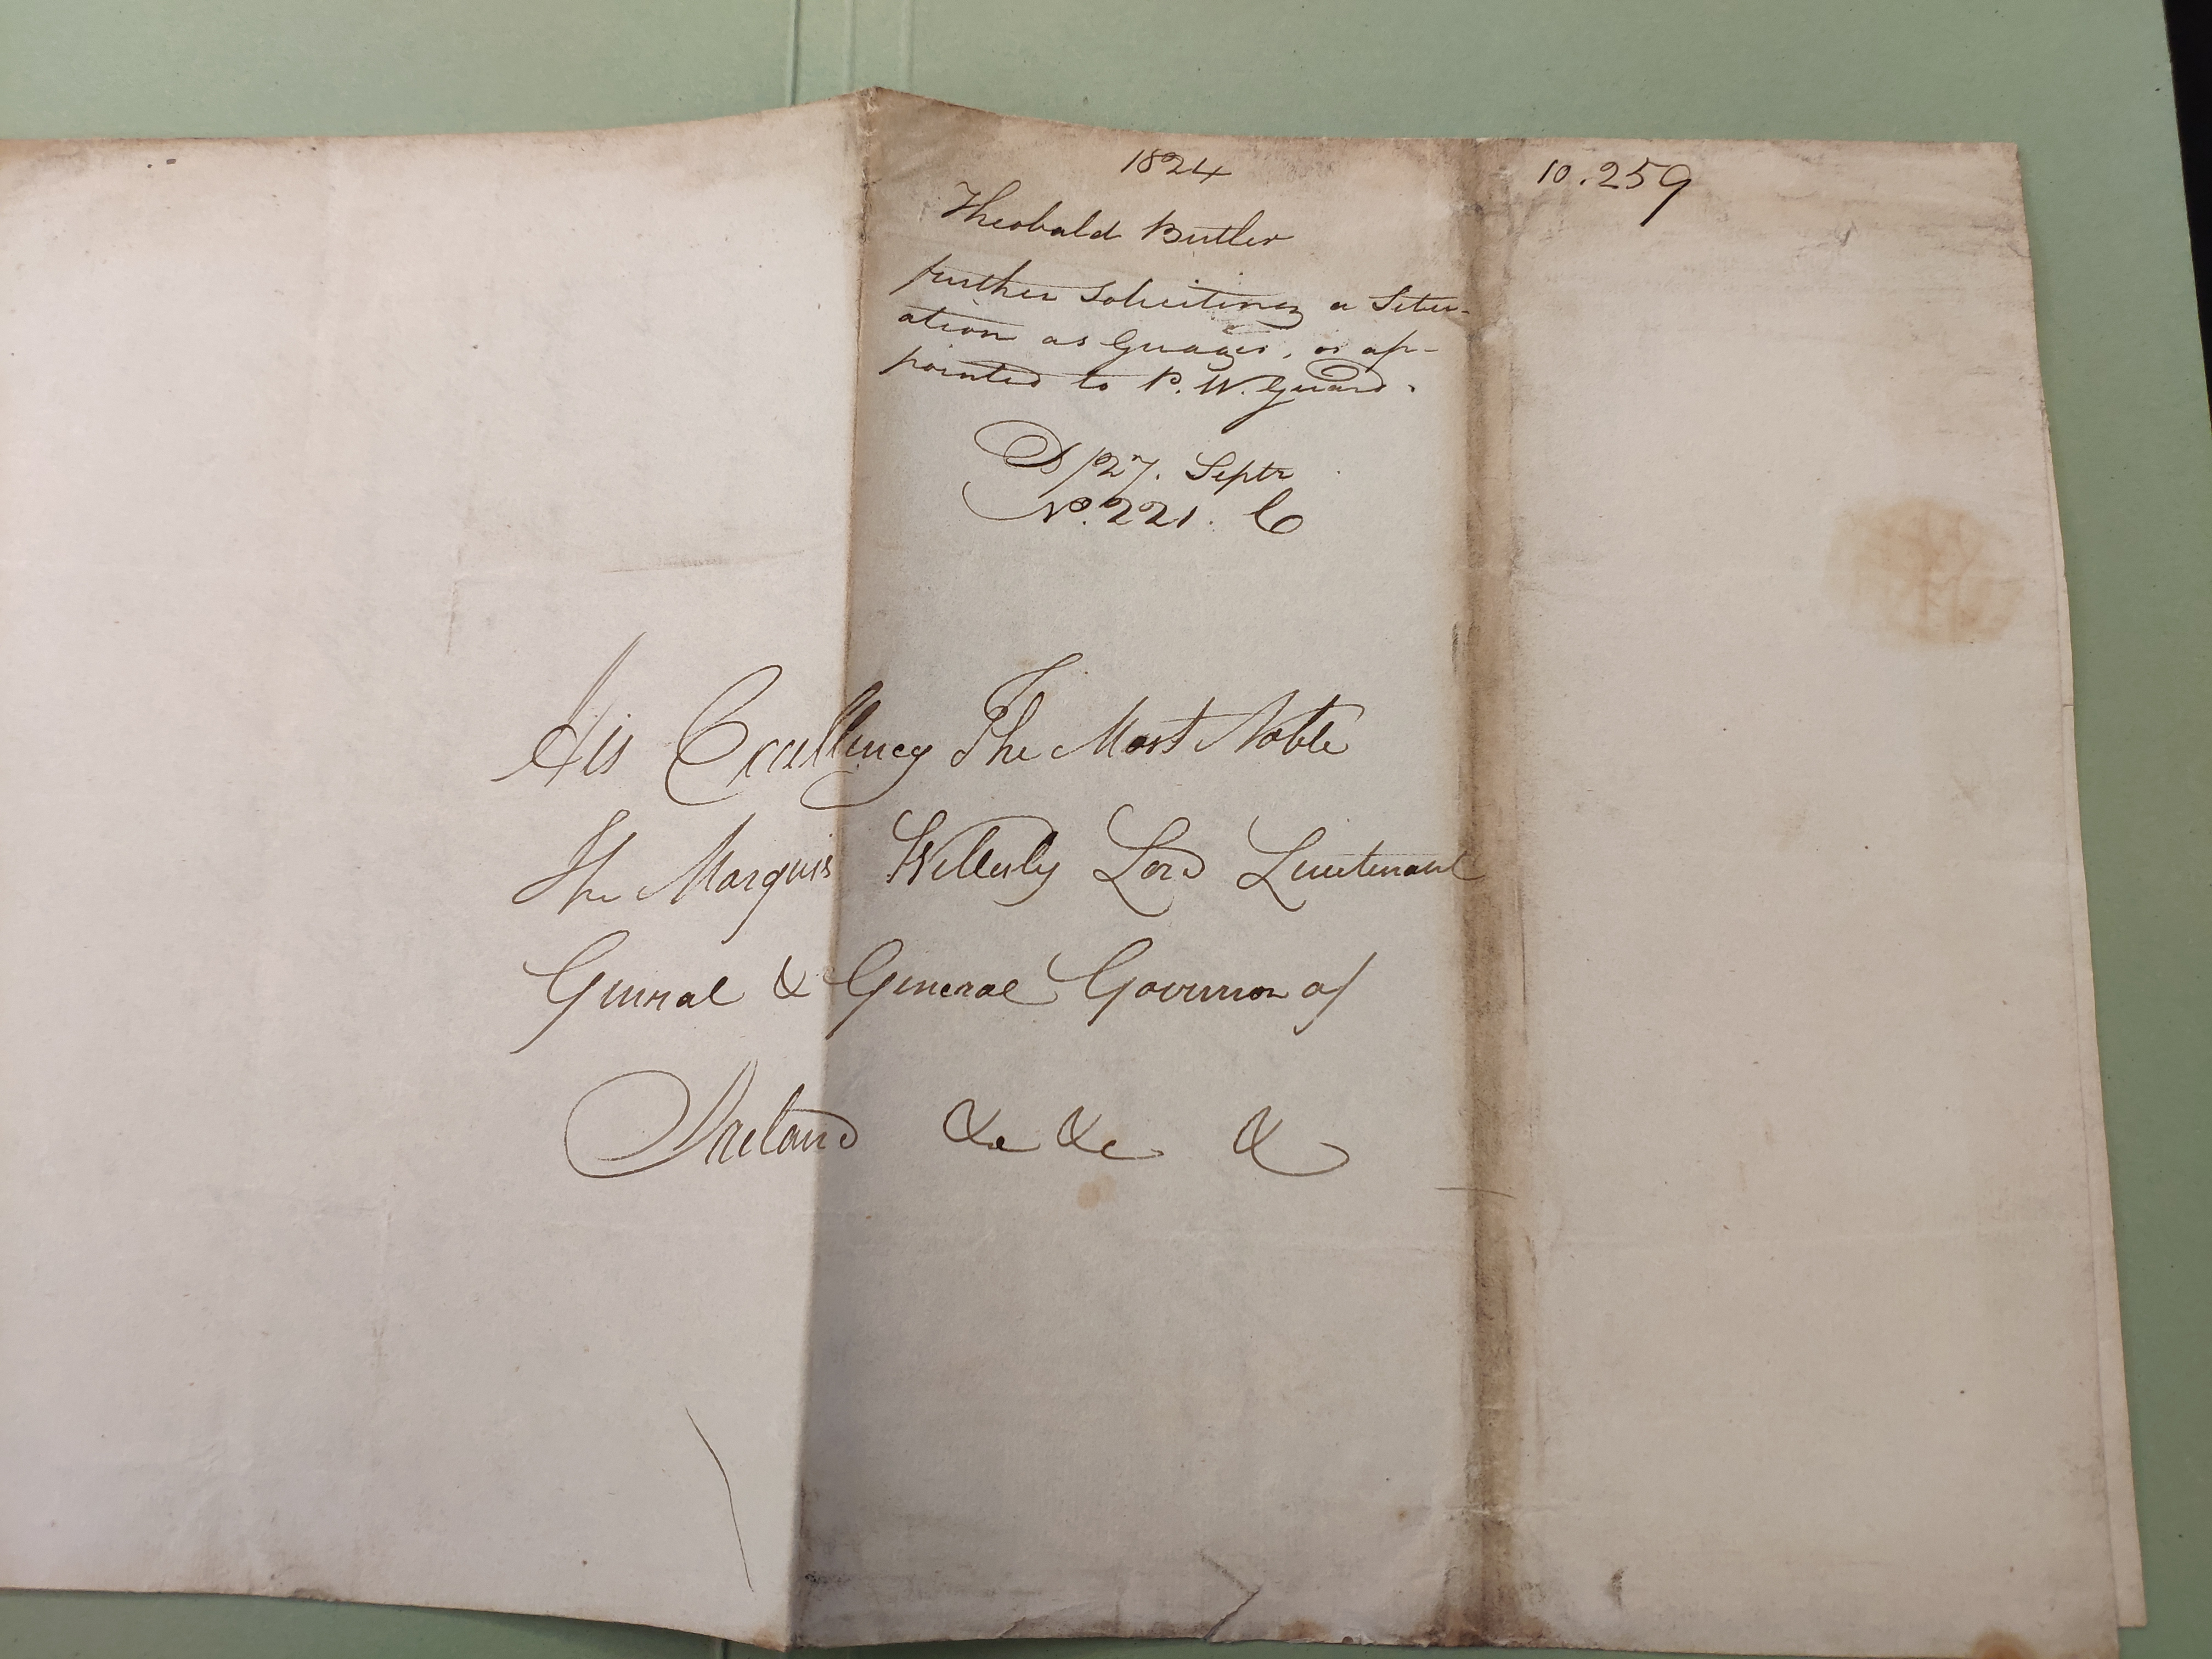 1824
10.259
Theobald Butler
further Soliciting a Situ-
ation as Guager, or ap-
pointed to P. W. Guard.
D/27. Septr
No. 221. C
His Excellency The Most Noble
The Marquis Wellesly Lord Lieutenant
General & General Governor of
Ireland &c &c &